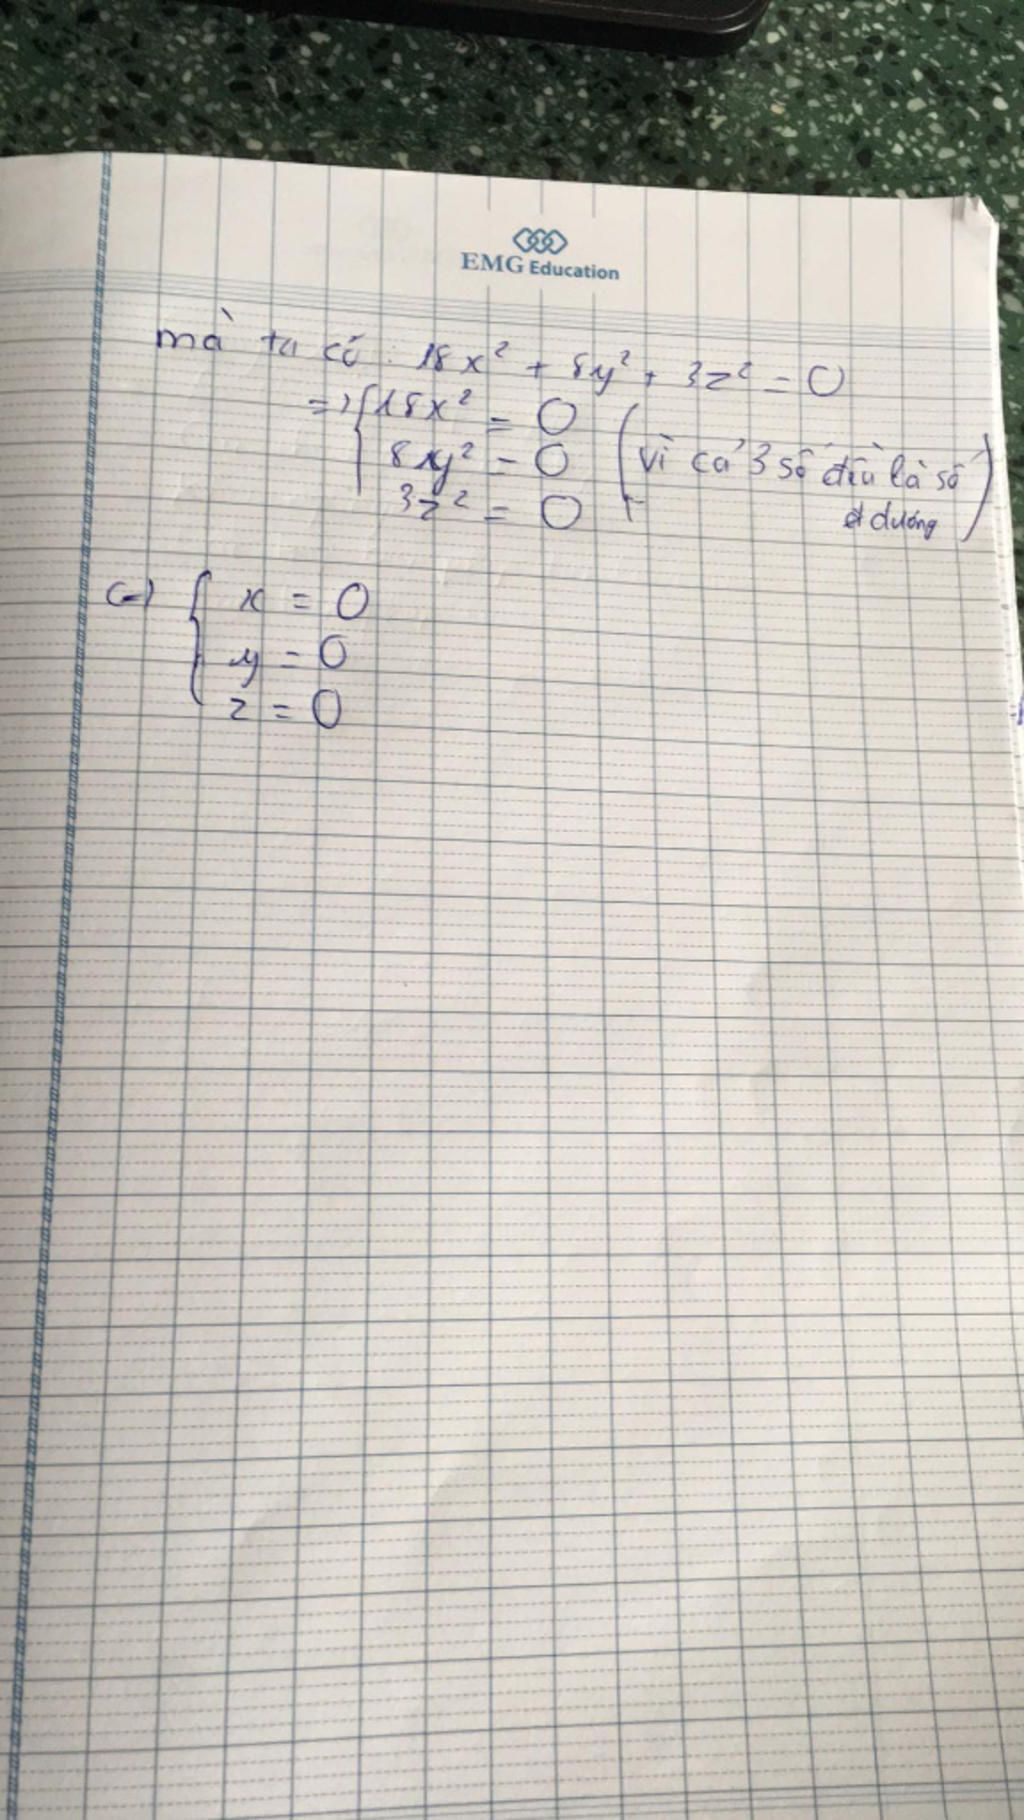 EMG Education
mà ta có : 18x² + 8y² + 3z² = 0
=> { 18x² = 0
8y² = 0 ( vì cả 3 số đều là số
3z² = 0 dương )
(=) { x = 0
y = 0
z = 0